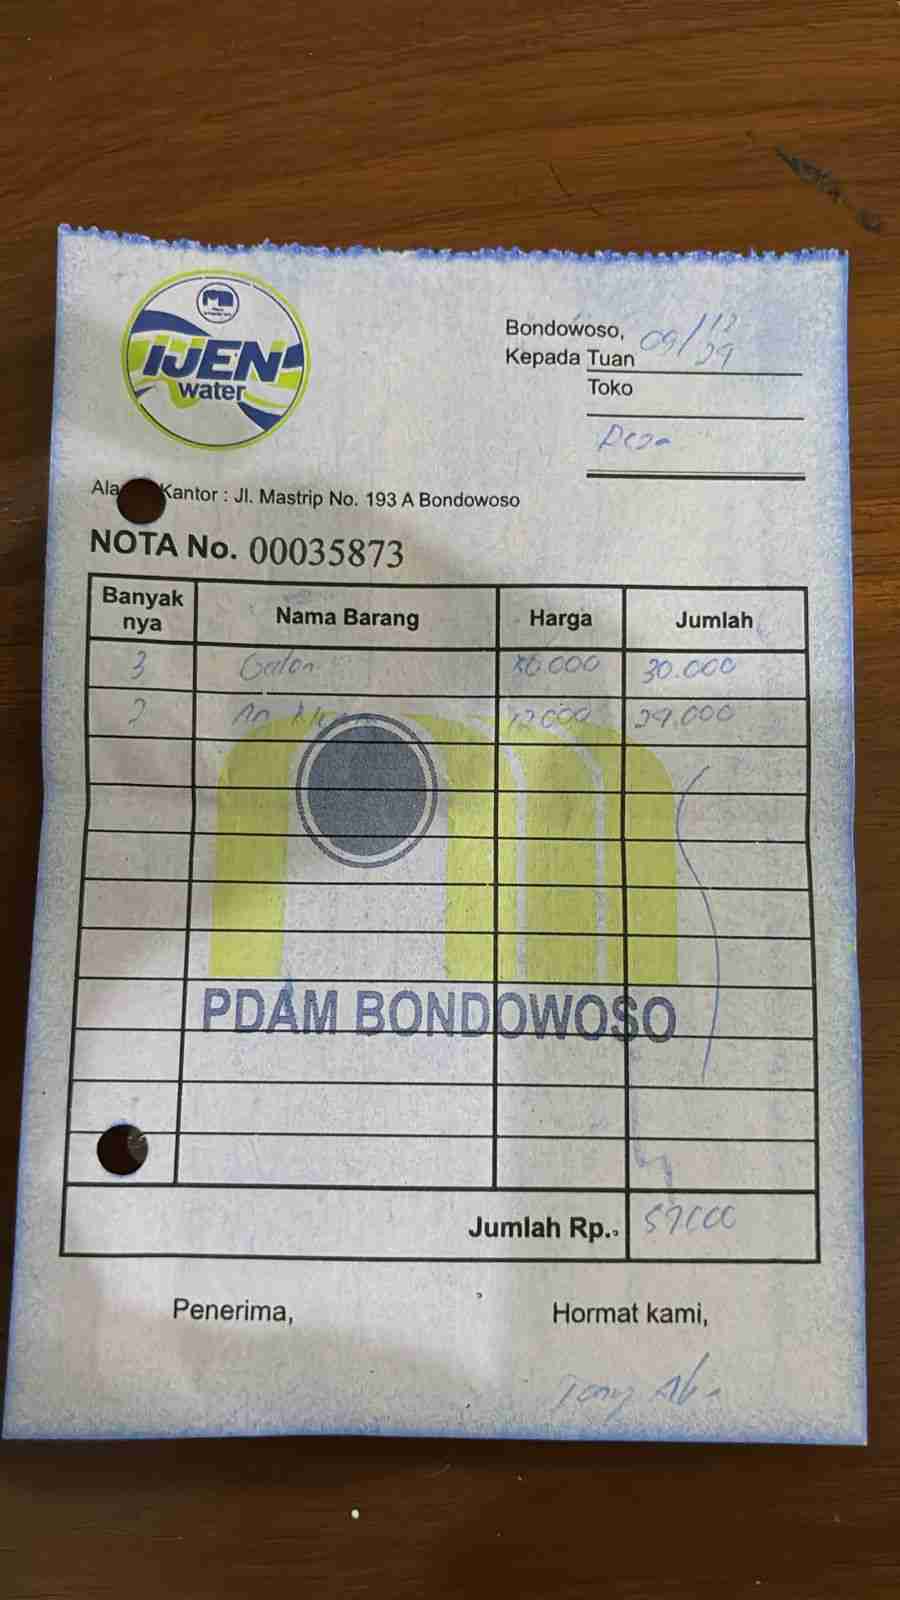 IJEN
water
Bondowoso, 09/12
Kepada Tuan
Toko
Kantor : Jl. Mastrip No. 193 A Bondowoso
NOTA No. 00035873
Banyak nya Nama Barang Harga Jumlah
3 Galon 10.000 30.000
2 12000
PDAM BONDOWOSO
Jumlah Rp.
Penerima, Hormat kami,